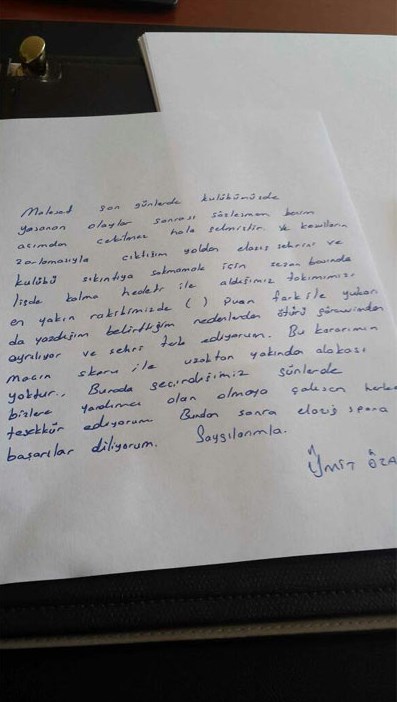 Malesef son günlerde kulübümüzde
yaşanan olaylar sonrası sözleşmem benim
açımdan çekilmez hale gelmiştir ve koşulların
zorlamasıyla çıktığım yoldan elazığ şehrini ve
kulübü sıkıntıya sokmamak için sezon başında
ligde kalma hedefi ile aldığımız takımımızı
en yakın rakibimizde ( ) Puan fark ile yukarı
da yazdığım belirttiğim nedenlerden ötürü görevimden
ayrılıyor ve şehri terk ediyorum. Bu kararımın
maçın skoru ile uzaktan yakından alakası
yoktur.. Burada geçirdiğimiz günlerde
bizlere yardımcı olan olmaya çalışan herke
teşekkür ediyorum. Bundan sonra elazığ spora
başarılar diliyorum. Saygılarımla.
Ümit Öza